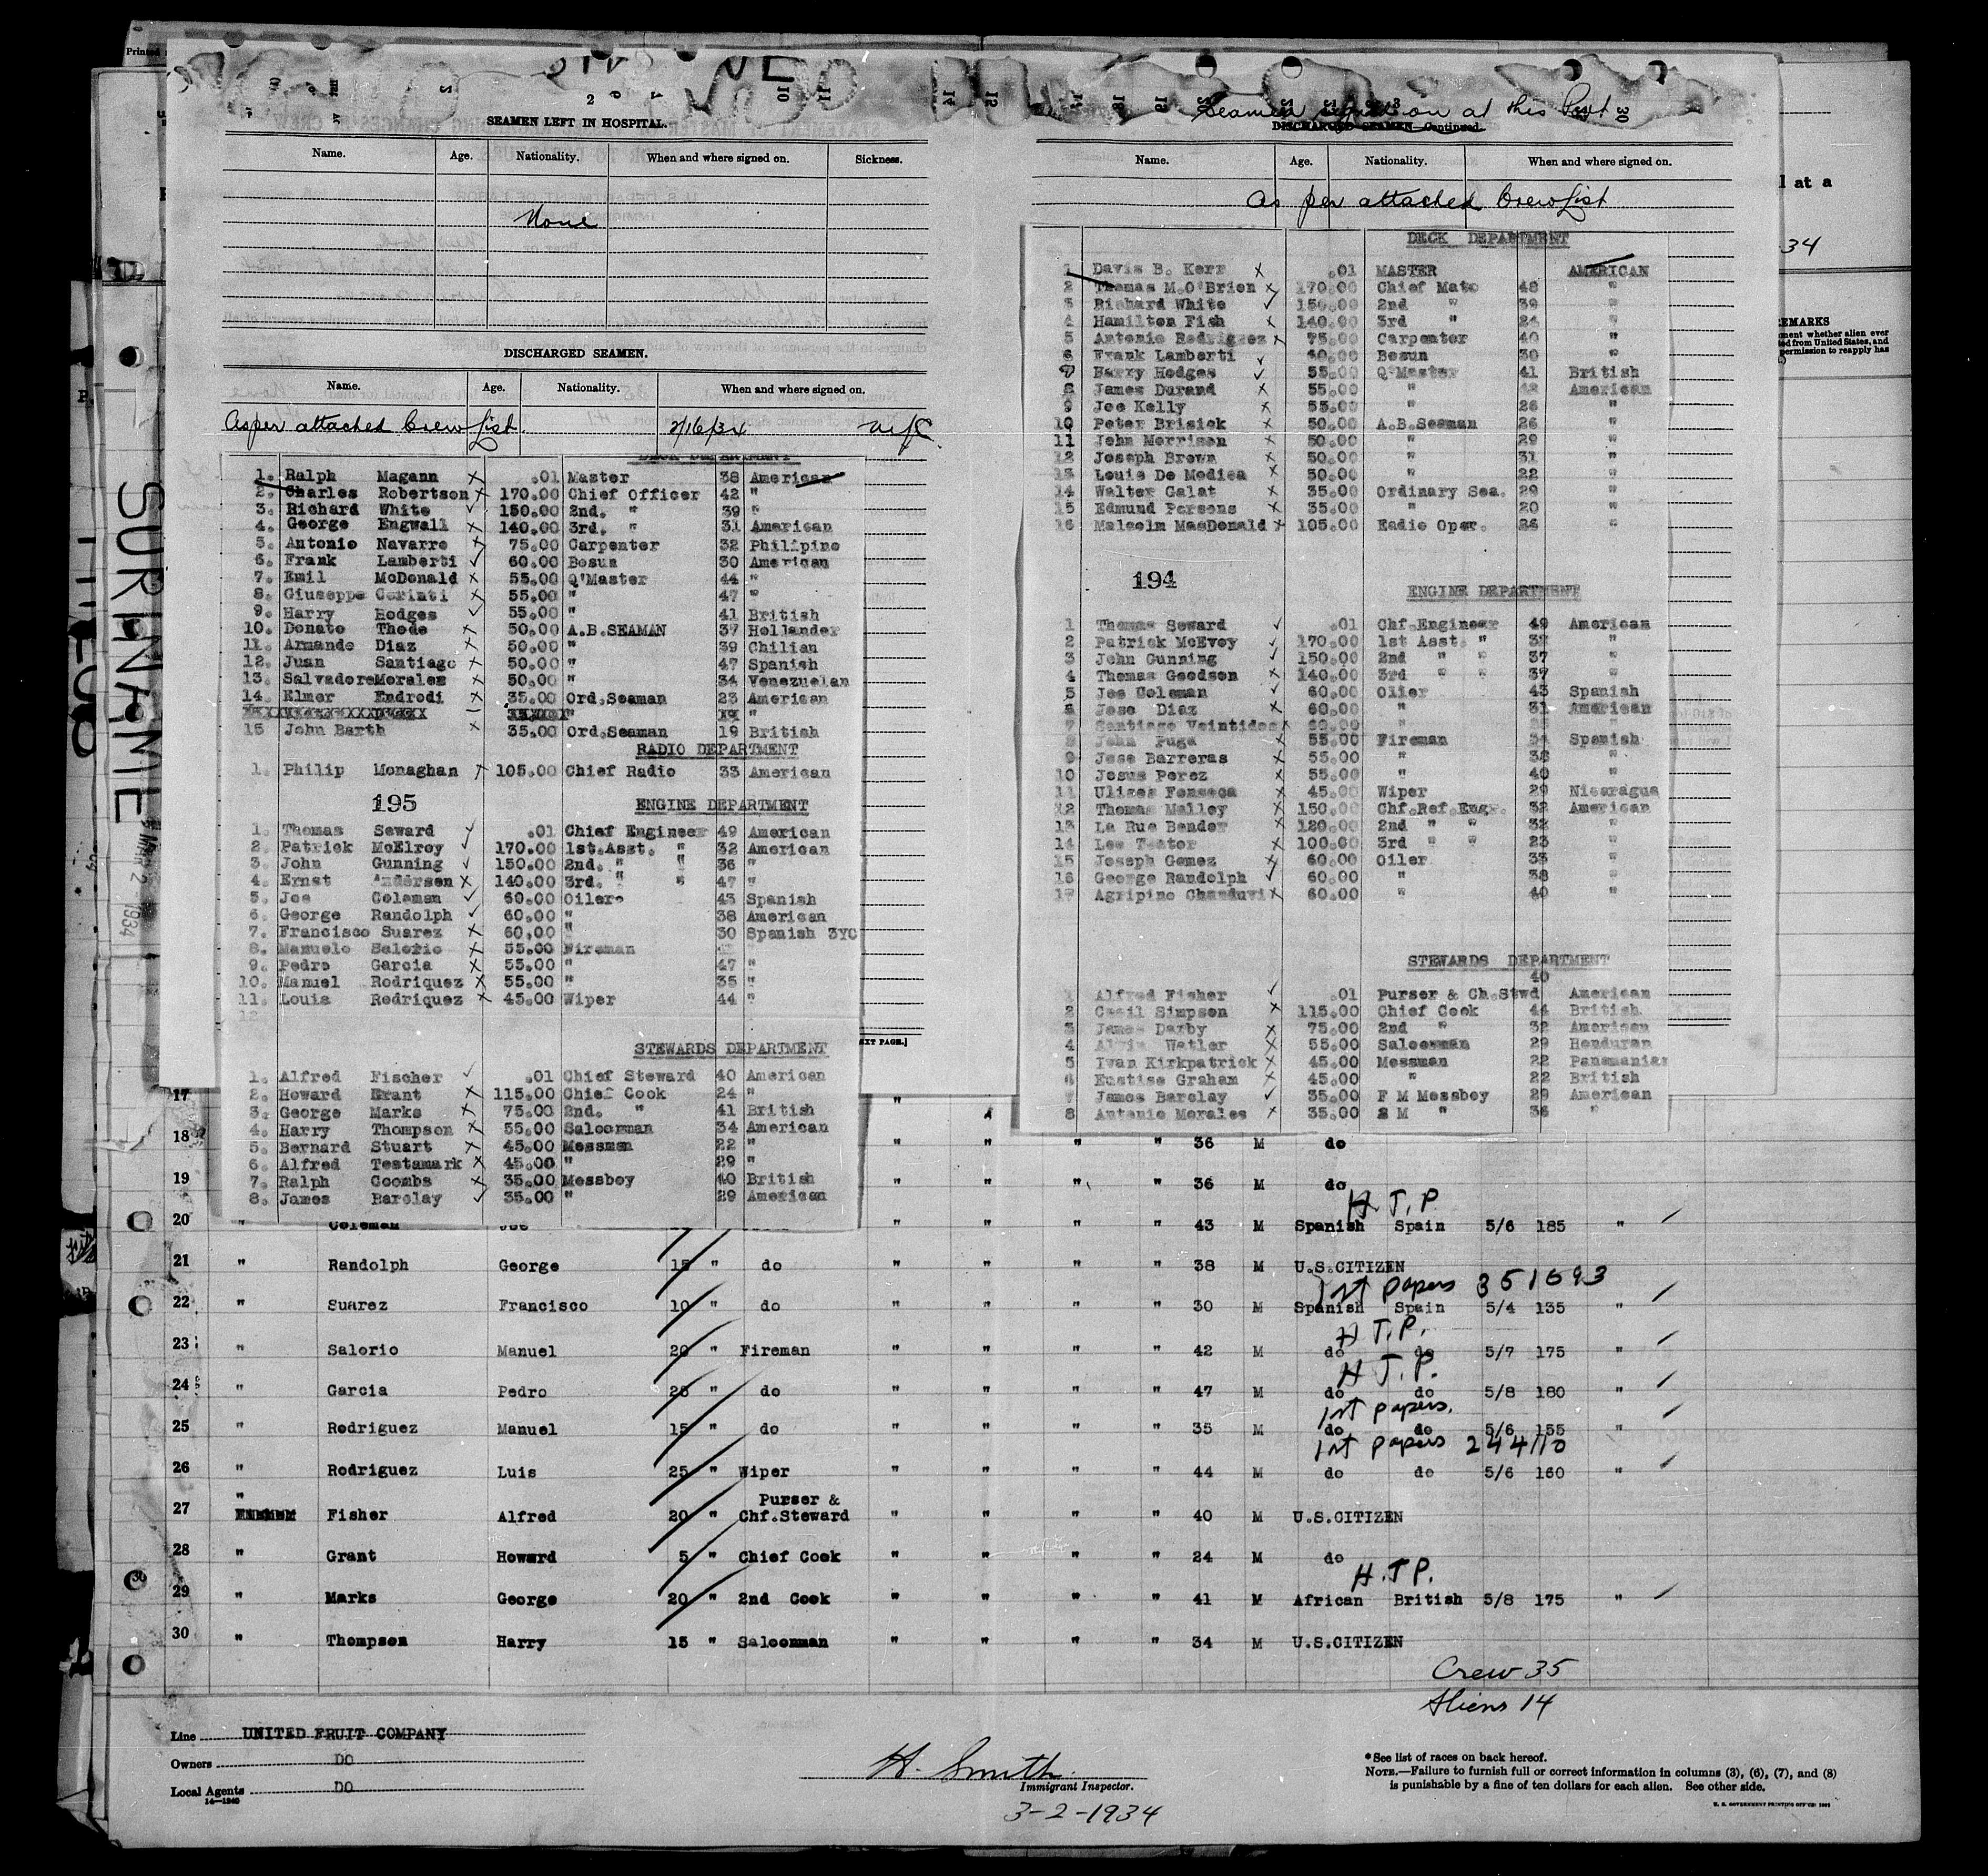 SEAMEN LEFT IN HOSPITAL.
Name. Age. Nationality. When and where signed on. Sickness.
None
DISCHARGED SEAMEN.
Name. Age. Nationality. When and where signed on.
As per attached Crew List. 2/16/34
DECK DEPARTMENT
1. Ralph Magann .01 Master 38 American
2. Charles Robertson 170.00 Chief Officer 42 "
3. Richard White 150.00 2nd. " 39 "
4. George Engwall 140.00 3rd. " 31 American
5. Antonio Navarro 75.00 Carpenter 32 Philipino
6. Frank Lamberti 60.00 Bosun 30 American
7. Emil McDonald 55.00 Q'Master 44 "
8. Giuseppe Corinti 55.00 " 47 "
9. Harry Hodges 55.00 " 41 British
10. Donato Thode 50.00 A.B.SEAMAN 37 Hollander
11. Armando Diaz 50.00 " 39 Chilian
12. Juan Santiago 50.00 " 47 Spanish
13. Salvadore Morales 50.00 " 34 Venezuelan
14. Elmer Endredi 35.00 Ord.Seaman 23 American
15 John Barth 35.00 Ord.Seaman 19 British
RADIO DEPARTMENT
1. Philip Monaghan 105.00 Chief Radio 33 American
195 ENGINE DEPARTMENT
1. Thomas Seward .01 Chief Engineer 49 American
2. Patrick McElroy 170.00 1st.Asst. " 32 American
3. John Gunning 150.00 2nd. " " 36 "
4. Ernst Andersen 140.00 3rd. " " 47 "
5. Joe Coleman 60.00 Oiler 43 Spanish
6. George Randolph 60.00 " 38 American
7. Francisco Suarez 60.00 " 30 Spanish 3YC
8. Manuelo Salorio 55.00 Fireman "
9. Pedro Garcia 55.00 " 47 "
10. Manuel Rodriquez 55.00 " 35 "
11. Louis Rodriquez 45.00 Wiper 44 "
12.
STEWARDS DEPARTMENT
1. Alfred Fischer .01 Chief Steward 40 American
2. Howard Grant 115.00 Chief Cook 24 "
3. George Marks 75.00 2nd. " 41 British
4. Harry Thompson 55.00 Saloonman 34 American
5. Bernard Stuart 45.00 Messman 22 "
6. Alfred Testamark 45.00 " 29 "
7. Ralph Coombs 35.00 Messboy 40 British
8. James Barclay 35.00 " 29 American
Seamen signed on at this Port
DISCHARGED SEAMEN—Continued.
Name. Age. Nationality. When and where signed on.
As per attached Crew List
DECK DEPARTMENT
1 Davis B. Kerr .01 MASTER AMERICAN
2 Thomas M.O'Brien 170.00 Chief Mate 48 "
3 Richard White 150.00 2nd " 39 "
4 Hamilton Fish 140.00 3rd " 24 "
5 Antonio Rodriguez 75.00 Carpenter 40 "
6 Frank Lamberti 60.00 Bosun 30 "
7 Harry Hodges 55.00 Q'Master 41 British
8 James Durand 55.00 " 42 American
9 Joe Kelly 55.00 " 26 "
10 Peter Brisick 50.00 A.B.Seaman 26 "
11 John Morrison 50.00 " 29 "
12 Joseph Brown 50.00 " 31 "
13 Louis De Medica 50.00 " 22 "
14 Walter Galat 35.00 Ordinary Sea. 29 "
15 Edmund Persons 35.00 " 20 "
16 Malcolm MacDonald 105.00 Radio Oper. 26 "
194
ENGINE DEPARTMENT
1 Thomas Seward .01 Chf.Engineer 49 American
2 Patrick McEvoy 170.00 1st Asst. " 32 "
3 John Gunning 150.00 2nd " " 37 "
4 Thomas Goodson 140.00 3rd " " 37 "
5 Joe Coleman 60.00 Oiler 43 Spanish
6 Jose Diaz 60.00 " 31 American
7 Santiago Veintidos 60.00 " "
8 John Puga 55.00 Fireman 34 Spanish
9 Jose Barreras 55.00 " 38 "
10 Jesus Perez 55.00 " 40 "
11 Ulises Fonseca 45.00 Wiper 29 Nicaragua
12 Thomas Malloy 150.00 Chf.Ref.Engr. 32 American
13 La Rue Bender 120.00 2nd " " 32 "
14 Lee Teator 100.00 3rd " " 23 "
15 Joseph Gomez 60.00 Oiler 33 "
16 George Randolph 60.00 " 38 "
17 Agripino Chanduvi 60.00 " 40 "
STEWARDS DEPARTMENT
40
1 Alfred Fisher .01 Purser & Ch.Stwd American
2 Cecil Simpson 115.00 Chief Cook 44 British
3 James Darby 75.00 2nd " 32 American
4 Alvin Watler 55.00 Saloonman 29 Honduran
5 Ivan Kirkpatrick 45.00 Messman 22 Panamanian
6 Eustise Graham 45.00 " 22 British
7 James Barclay 35.00 F M Messboy 29 American
8 Antonio Morales 35.00 S M " 36 "
SURINAME
MAR 2 1934
17 "
18 " " " 36 M do
19 " " " " 36 M do
H.T.P.
20 " Coleman Joe " " " " 43 M Spanish Spain 5/6 185 "
21 " Randolph George 15 " do " " " " 38 M U.S.CITIZEN
1st papers 351693
22 " Suarez Francisco 10 " do " " " " 30 M Spanish Spain 5/4 135 "
H T.P.
23 " Salorio Manuel 20 " Fireman " " " " 42 M do do 5/7 175 "
H T.P.
24 " Garcia Pedro 25 " do " " " " 47 M do do 5/8 180 "
1st papers.
25 " Rodriguez Manuel 15 " do " " " " 35 M do do 5/6 155 "
1st papers 244110
26 " Rodriguez Luis 25 " Wiper " " " " 44 M do do 5/6 160 "
27 " Fisher Alfred 20 " Purser & Chf.Steward " " " " 40 M U.S.CITIZEN
28 " Grant Howard 5 " Chief Cook " " " " 24 M do
H.T.P.
29 " Marks George 20 " 2nd Cook " " " " 41 M African British 5/8 175 "
30 " Thompson Harry 15 " Saloonman " " " " 34 M U.S.CITIZEN
Crew 35
Aliens 14
Line UNITED FRUIT COMPANY
Owners DO
Local Agents DO
14—1240
H. Smith
Immigrant Inspector.
3-2-1934
*See list of races on back hereof.
NOTE.—Failure to furnish full or correct information in columns (3), (6), (7), and (8)
is punishable by a fine of ten dollars for each alien. See other side.